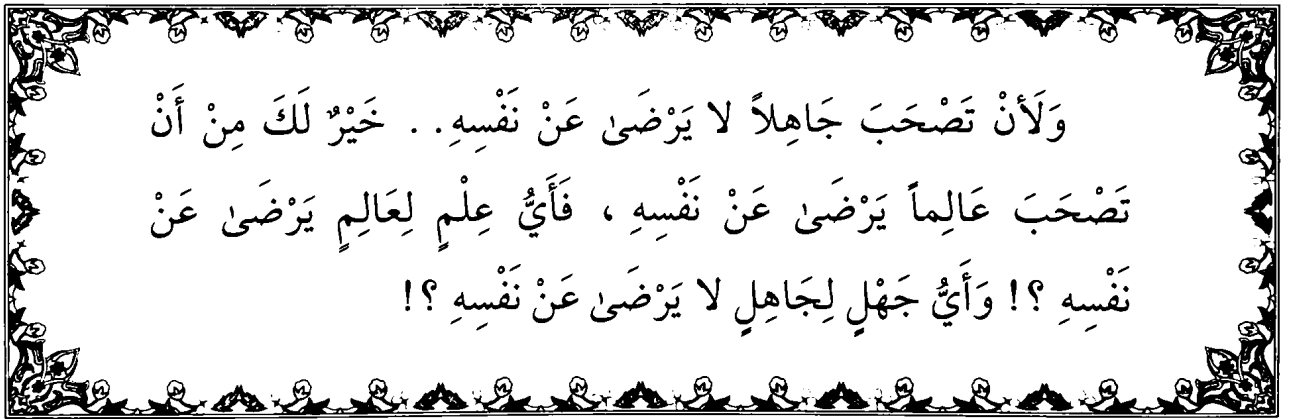 وَلَأَنْ تَصْحَبَ جَاهِلاً لا يَرْضَىٰ عَنْ نَفْسِهِ.. خَيْرٌ لَكَ مِنْ أَنْ
تَصْحَبَ عَالِماً يَرْضَىٰ عَنْ نَفْسِهِ ، فَأَيُّ عِلْمٍ لِعَالِمٍ يَرْضَىٰ عَنْ
نَفْسِهِ ؟! وَأَيُّ جَهْلٍ لِجَاهِلٍ لا يَرْضَىٰ عَنْ نَفْسِهِ ؟!